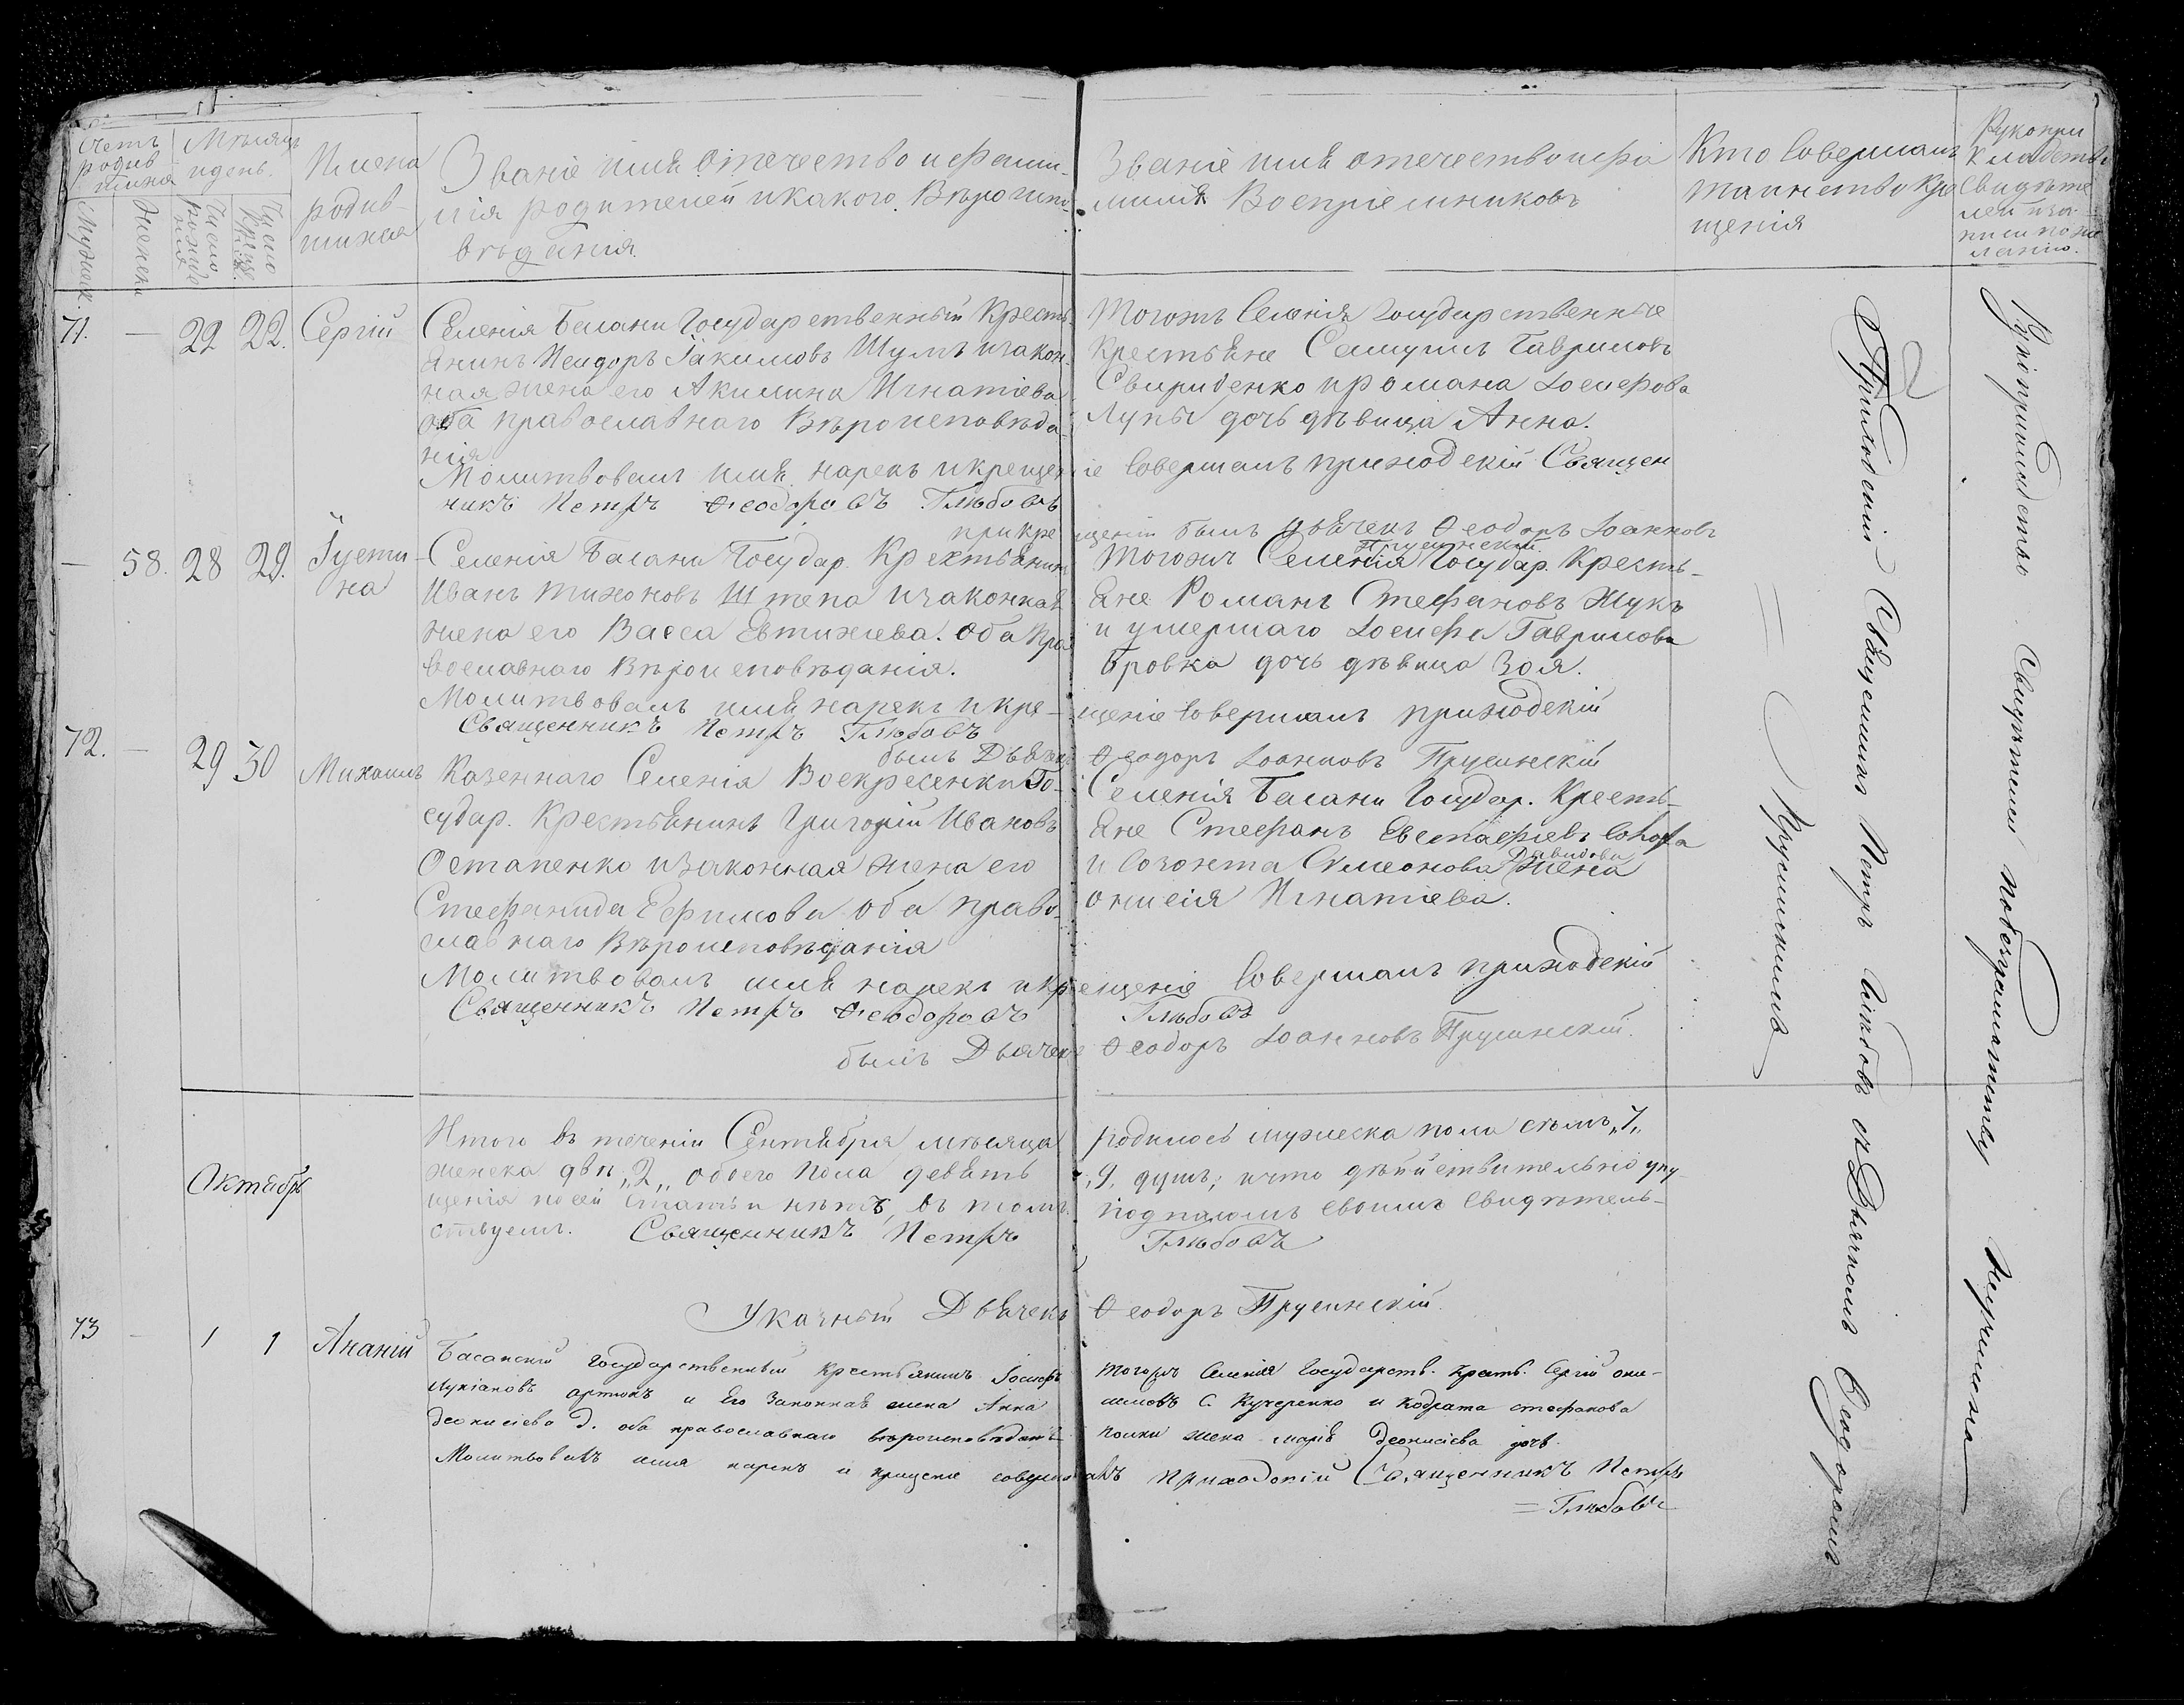 Счетъ родив-шихся
Мѣсяцъ и день.
Имена родив-шихся
Званіе имя отечество и фами-
лія родителей и какого Вѣроиспо-
вѣданія.
Званіе имя отечество и фа
милія Воспріемниковъ
Кто Совершалъ
таинство Кре
щенія
Рукопри
кладство
Свидѣте
лей
по же
ланію.
Мужеск.
Женски
Число рожде нія
Число Креще.
71. — 29 22. Сергій
Селенія Басани Государственный Кресть
янинъ Исидоръ Іакимовъ Шумъ и закон-
ная жена его Акилина Игнатіева
оба православнаго Вѣроисповѣда-
нія
Тогожъ Селенія Государственные
Крестьяне Самуилъ Гавриловъ
Свириденко и романа Іосифова
Лупы дочь дѣвица Анна.
Молитвовалъ имя нарекъ и крещеніе Совершалъ приходскій Священ
никъ Петръ Феодоровъ Глѣбовъ
при крещеніи былъ Дьячекъ Феодоръ Іоанновъ
Прусинскій
— 58. 28 29. Іусти-
на
Селенія Басани Государ. Крестьянинъ
Иванъ Тихоновъ Штепа и законная
жена его Васса Евтихіева. Оба Пра
вославнаго Вѣроисповѣданія.
Тогожъ Селенія Государ. Кресть-
яне Романъ Стефановъ Жукъ
и умершаго Іосифа Гаврилова
Бровка дочь дѣвица Зоя.
Молитвовалъ имя нарекъ и кре-щеніе Совершалъ приходскій
Священникъ Петръ Глѣбовъ
былъ Дьячекъ Феодоръ Іоанновъ Прусинскій
72. — 29 30 Михаилъ
Казеннаго Селенія Воскресенки Го-
судар. Крестьянинъ Григорій Ивановъ
Остапенко и законная жена его
Стефанида Ефимова Оба право-
славнаго Вѣроисповѣданія
Селенія Басани Государ. Кресть-
яне Стефанъ Евстафіевъ
и Созонта Симеонова Давидова жена
Игнатіева.
Молитвовалъ имя нарекъ и крещеніе Совершалъ приходскій
Священникъ Петръ Феодоровъ Глѣбовъ
былъ Дьячекъ Феодоръ Іоанновъ Прусинскій.
Итого въ теченіи Сентября мѣсяца родилось мужеска пола семь „7„
женска двѣ „2„ обоего пола девять „9„ душъ; и что дѣйствительно упу-
щенія по сей статьи нѣтъ, въ томъ подписомъ своимъ Свидѣтель-
ствуемъ. Священникъ Петръ Глѣбовъ
Октябрь
Указный Дьячекъ Феодоръ Прусинскій.
73 — 1 1 Ананій
Басанскій Государственный крестьянинъ Іосифъ
Лукіановъ артюхъ и Его Законная жена Анна
деонисіева д. оба православнаго вѣроисповѣданія
тогожъ Селенія Государств. кресть. Сергій они-
симовъ С. Кучеренко и Кодрата стефанова
жена марія деонисіева дочь.
Молитвовалъ имя нарекъ и крещеніе совершалъ приходскій Священникъ Петръ
= Глѣбовъ
Приходскій Священникъ Петръ Глѣбовъ съ Дьячкомъ Феодоромъ
= Прусинскимъ
Рукоприкладство Свидѣтелей по безграмотству не учинено